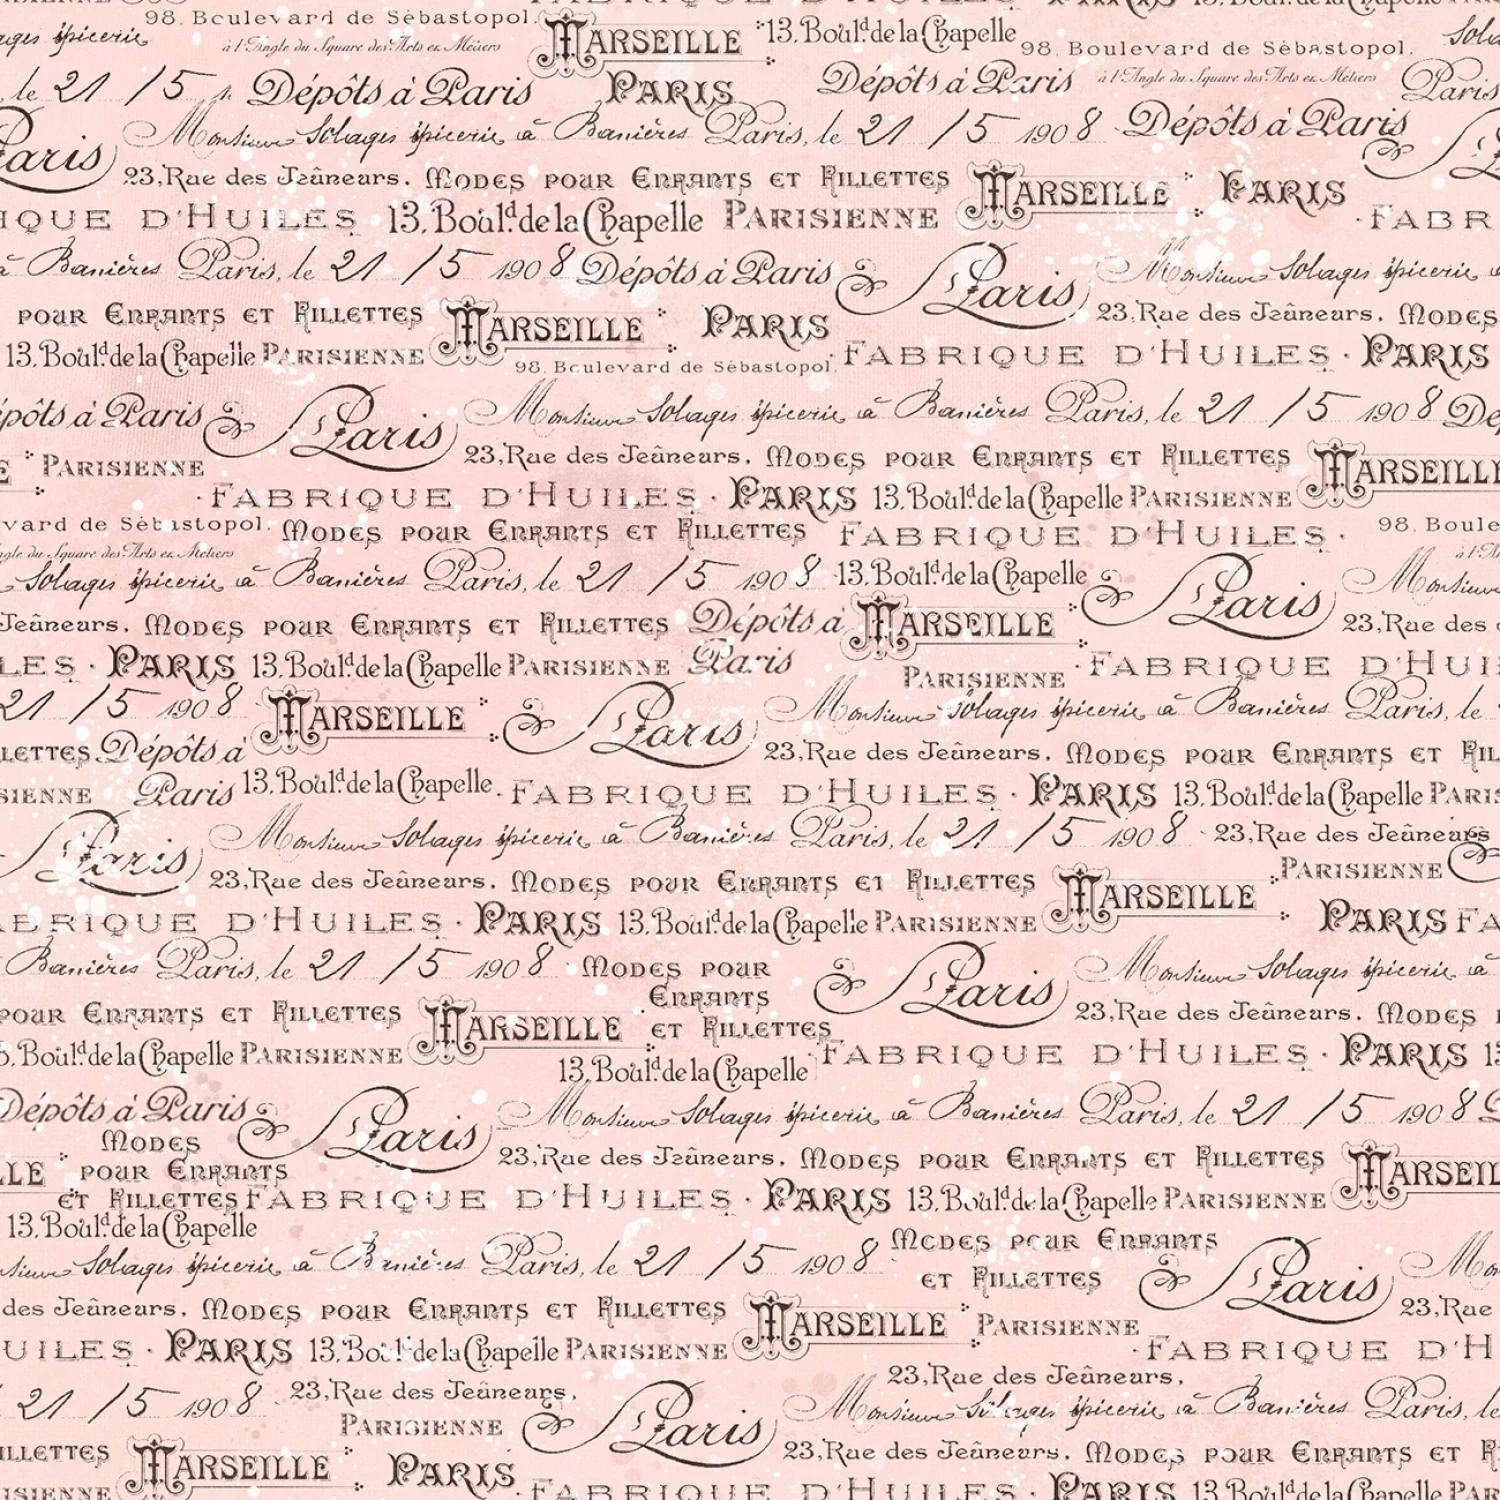 FABRIQUE D'HUILES · PARIS 13. Boul.d de la Chapelle
98. Boulevard de Sébastopol. MARSEILLE 13. Boul.d de la Chapelle 98. Boulevard de Sébastopol.
épicerie à l'Angle du Square des Arts et Métiers à l'Angle du Square des Arts et Métiers
, le 21 / 5 Dépôts à Paris PARIS Dépôts à Paris Paris
Paris Monsieur Solages épicerie à Banières Paris, le 21 / 5 1908 Dépôts à Paris
23, Rue des Jeûneurs. MODES POUR ENFANTS ET FILLETTES MARSEILLE PARIS
IQUE D'HUILES 13. Boul.d de la Chapelle PARISIENNE · FABR
à Banières Paris, le 21 / 5 1908 Dépôts à Paris Paris Monsieur Solages épicerie
POUR ENFANTS ET FILLETTES MARSEILLE PARIS 23, Rue des Jeûneurs. MODES
13. Boul.d de la Chapelle PARISIENNE 98. Boulevard de Sébastopol. FABRIQUE D'HUILES · PARIS
épôts à Paris Paris Monsieur Solages épicerie à Banières Paris, le 21 / 5 1908 Dé
E PARISIENNE 23, Rue des Jeûneurs. MODES POUR ENFANTS ET FILLETTES MARSEILLE
· FABRIQUE D'HUILES · PARIS 13. Boul.d de la Chapelle PARISIENNE
vard de Sébastopol. MODES POUR ENFANTS ET FILLETTES FABRIQUE D'HUILES · 98. Boule
ngle du Square des Arts et Métiers
Solages épicerie à Banières Paris, le 21 / 5 1908 13. Boul.d de la Chapelle Paris Monsieur
Jeûneurs. MODES POUR ENFANTS ET FILLETTES Dépôts à MARSEILLE 23, Rue des
LES · PARIS 13. Boul.d de la Chapelle PARISIENNE Paris PARISIENNE · FABRIQUE D'HUI
21 / 5 1908 MARSEILLE Paris Monsieur Solages épicerie à Banières Paris, le
LETTES Dépôts à 23, Rue des Jeûneurs. MODES POUR ENFANTS ET FIL
SIENNE Paris 13. Boul.d de la Chapelle · FABRIQUE D'HUILES · PARIS 13. Boul.d de la Chapelle PARIS
Paris Monsieur Solages épicerie à Banières Paris, le 21 / 5 1908 23, Rue des Jeûneurs
23, Rue des Jeûneurs. MODES POUR ENFANTS ET FILLETTES MARSEILLE PARISIENNE
ABRIQUE D'HUILES · PARIS 13. Boul.d de la Chapelle PARISIENNE PARIS FA
Banières Paris, le 21 / 5 1908 MODES POUR Paris Monsieur Solages épicerie à
POUR ENFANTS ET FILLETTES MARSEILLE ENFANTS ET FILLETTES 23, Rue des Jeûneurs. MODES
3. Boul.d de la Chapelle PARISIENNE 13. Boul.d de la Chapelle FABRIQUE D'HUILES · PARIS 13
Dépôts à Paris Paris Monsieur Solages épicerie à Banières Paris, le 21 / 5 1908
MODES
LLE POUR ENFANTS 23, Rue des Jeûneurs. MODES POUR ENFANTS ET FILLETTES MARSEIL
ET FILLETTES FABRIQUE D'HUILES · PARIS 13. Boul.d de la Chapelle PARISIENNE
13. Boul.d de la Chapelle
nsieur Solages épicerie à Banières Paris, le 21 / 5 1908 MODES POUR ENFANTS Paris Mo
des Jeûneurs. MODES POUR ENFANTS ET FILLETTES MARSEILLE ET FILLETTES PARISIENNE 23, Rue
UILES · PARIS 13. Boul.d de la Chapelle PARISIENNE · FABRIQUE D'H
21 / 5 1908 23, Rue des Jeûneurs, Paris 23, Rue des Jeûneurs,
PARISIENNE Monsieur Solages épicerie à Banières Paris, le
ILLETTES MARSEILLE PARIS 23, Rue des Jeûneurs. MODES POUR ENFANTS ET F
ISIENNE · FABRIQUE D'HUILES · PARIS 13. Boul.d de la Chapelle PAR